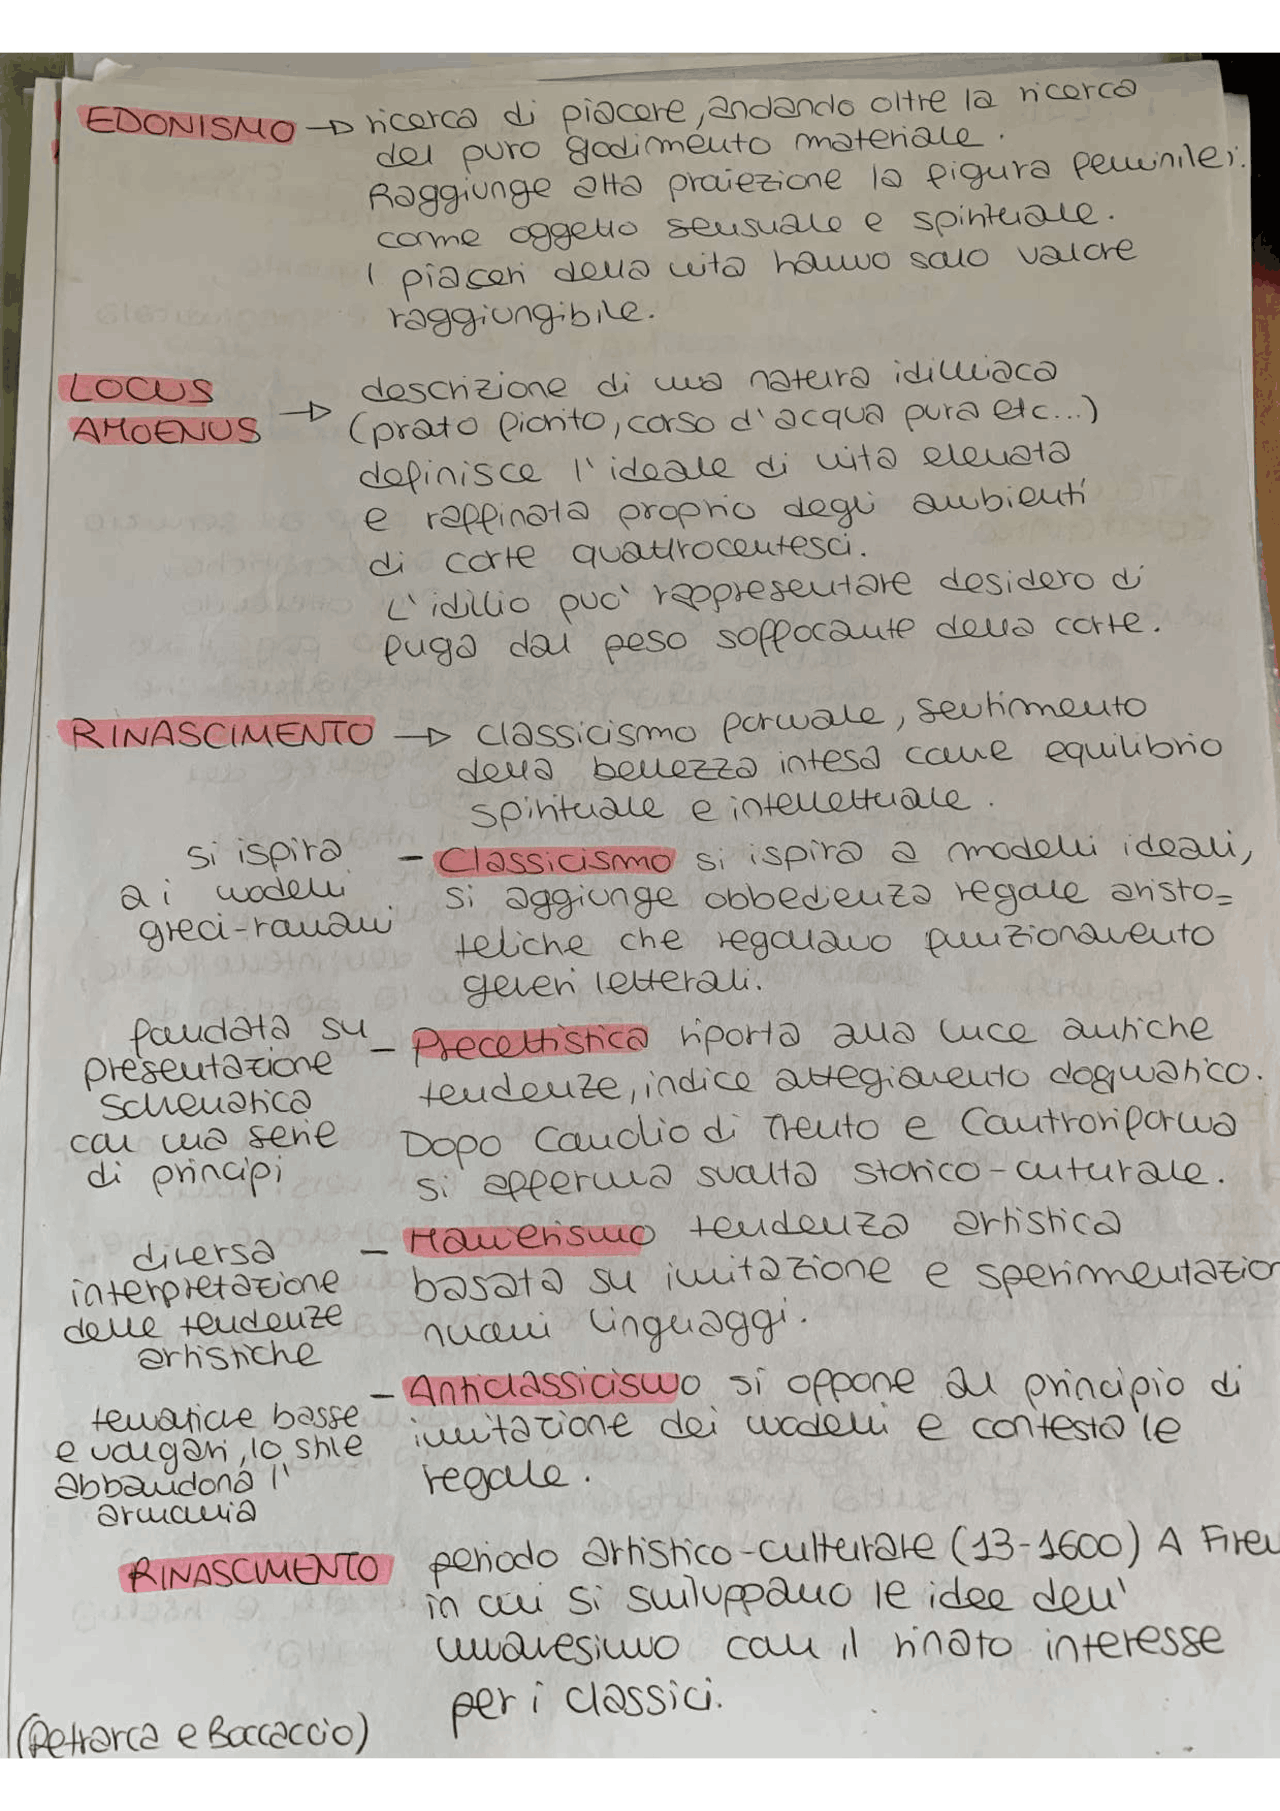 EDONISMO → ricerca di piacere, andando oltre la ricerca
del puro godimento materiale.
Raggiunge alta proiezione la figura femminile,
come oggetto sensuale e spirituale.
I piaceri della vita hanno solo valore
raggiungibile.
LOCUS
AMOENUS → descrizione di una natura idilliaca
(prato fiorito, corso d'acqua pura etc...)
definisce l'ideale di vita elevata
e raffinata proprio degli ambienti
di corte quattrocentesci.
L'idillio può rappresentare desidero di
fuga dal peso soffocante della corte.
RINASCIMENTO → classicismo formale, sentimento
della bellezza intesa come equilibrio
spirituale e intellettuale.
si ispira
ai modelli
greci-romani
- Classicismo si ispira a modelli ideali,
si aggiunge obbedienza regole aristo=
teliche che regolano funzionamento
generi letterali.
fondata su
presentazione
schematica
con una serie
di principi
- Precettistica riporta alla luce antiche
tendenze, indice attegiamento dogmatico.
Dopo Concilio di Trento e Controriforma
si afferma svolta storico-cuturale.
diversa
interpretazione
delle tendenze
artistiche
- Manierismo tendenza artistica
basata su imitazione e sperimentazion
nuovi linguaggi.
tematiche basse
e volgari, lo stile
abbandona l'
armonia
- Anticlassicismo si oppone al principio di
imitazione dei modelli e contesta le
regole.
RINASCIMENTO periodo artistico-culturale (13-1600) A Firen
in cui si sviluppano le idee dell'
umanesimo con il rinato interesse
per i classici.
(Petrarca e Boccaccio)